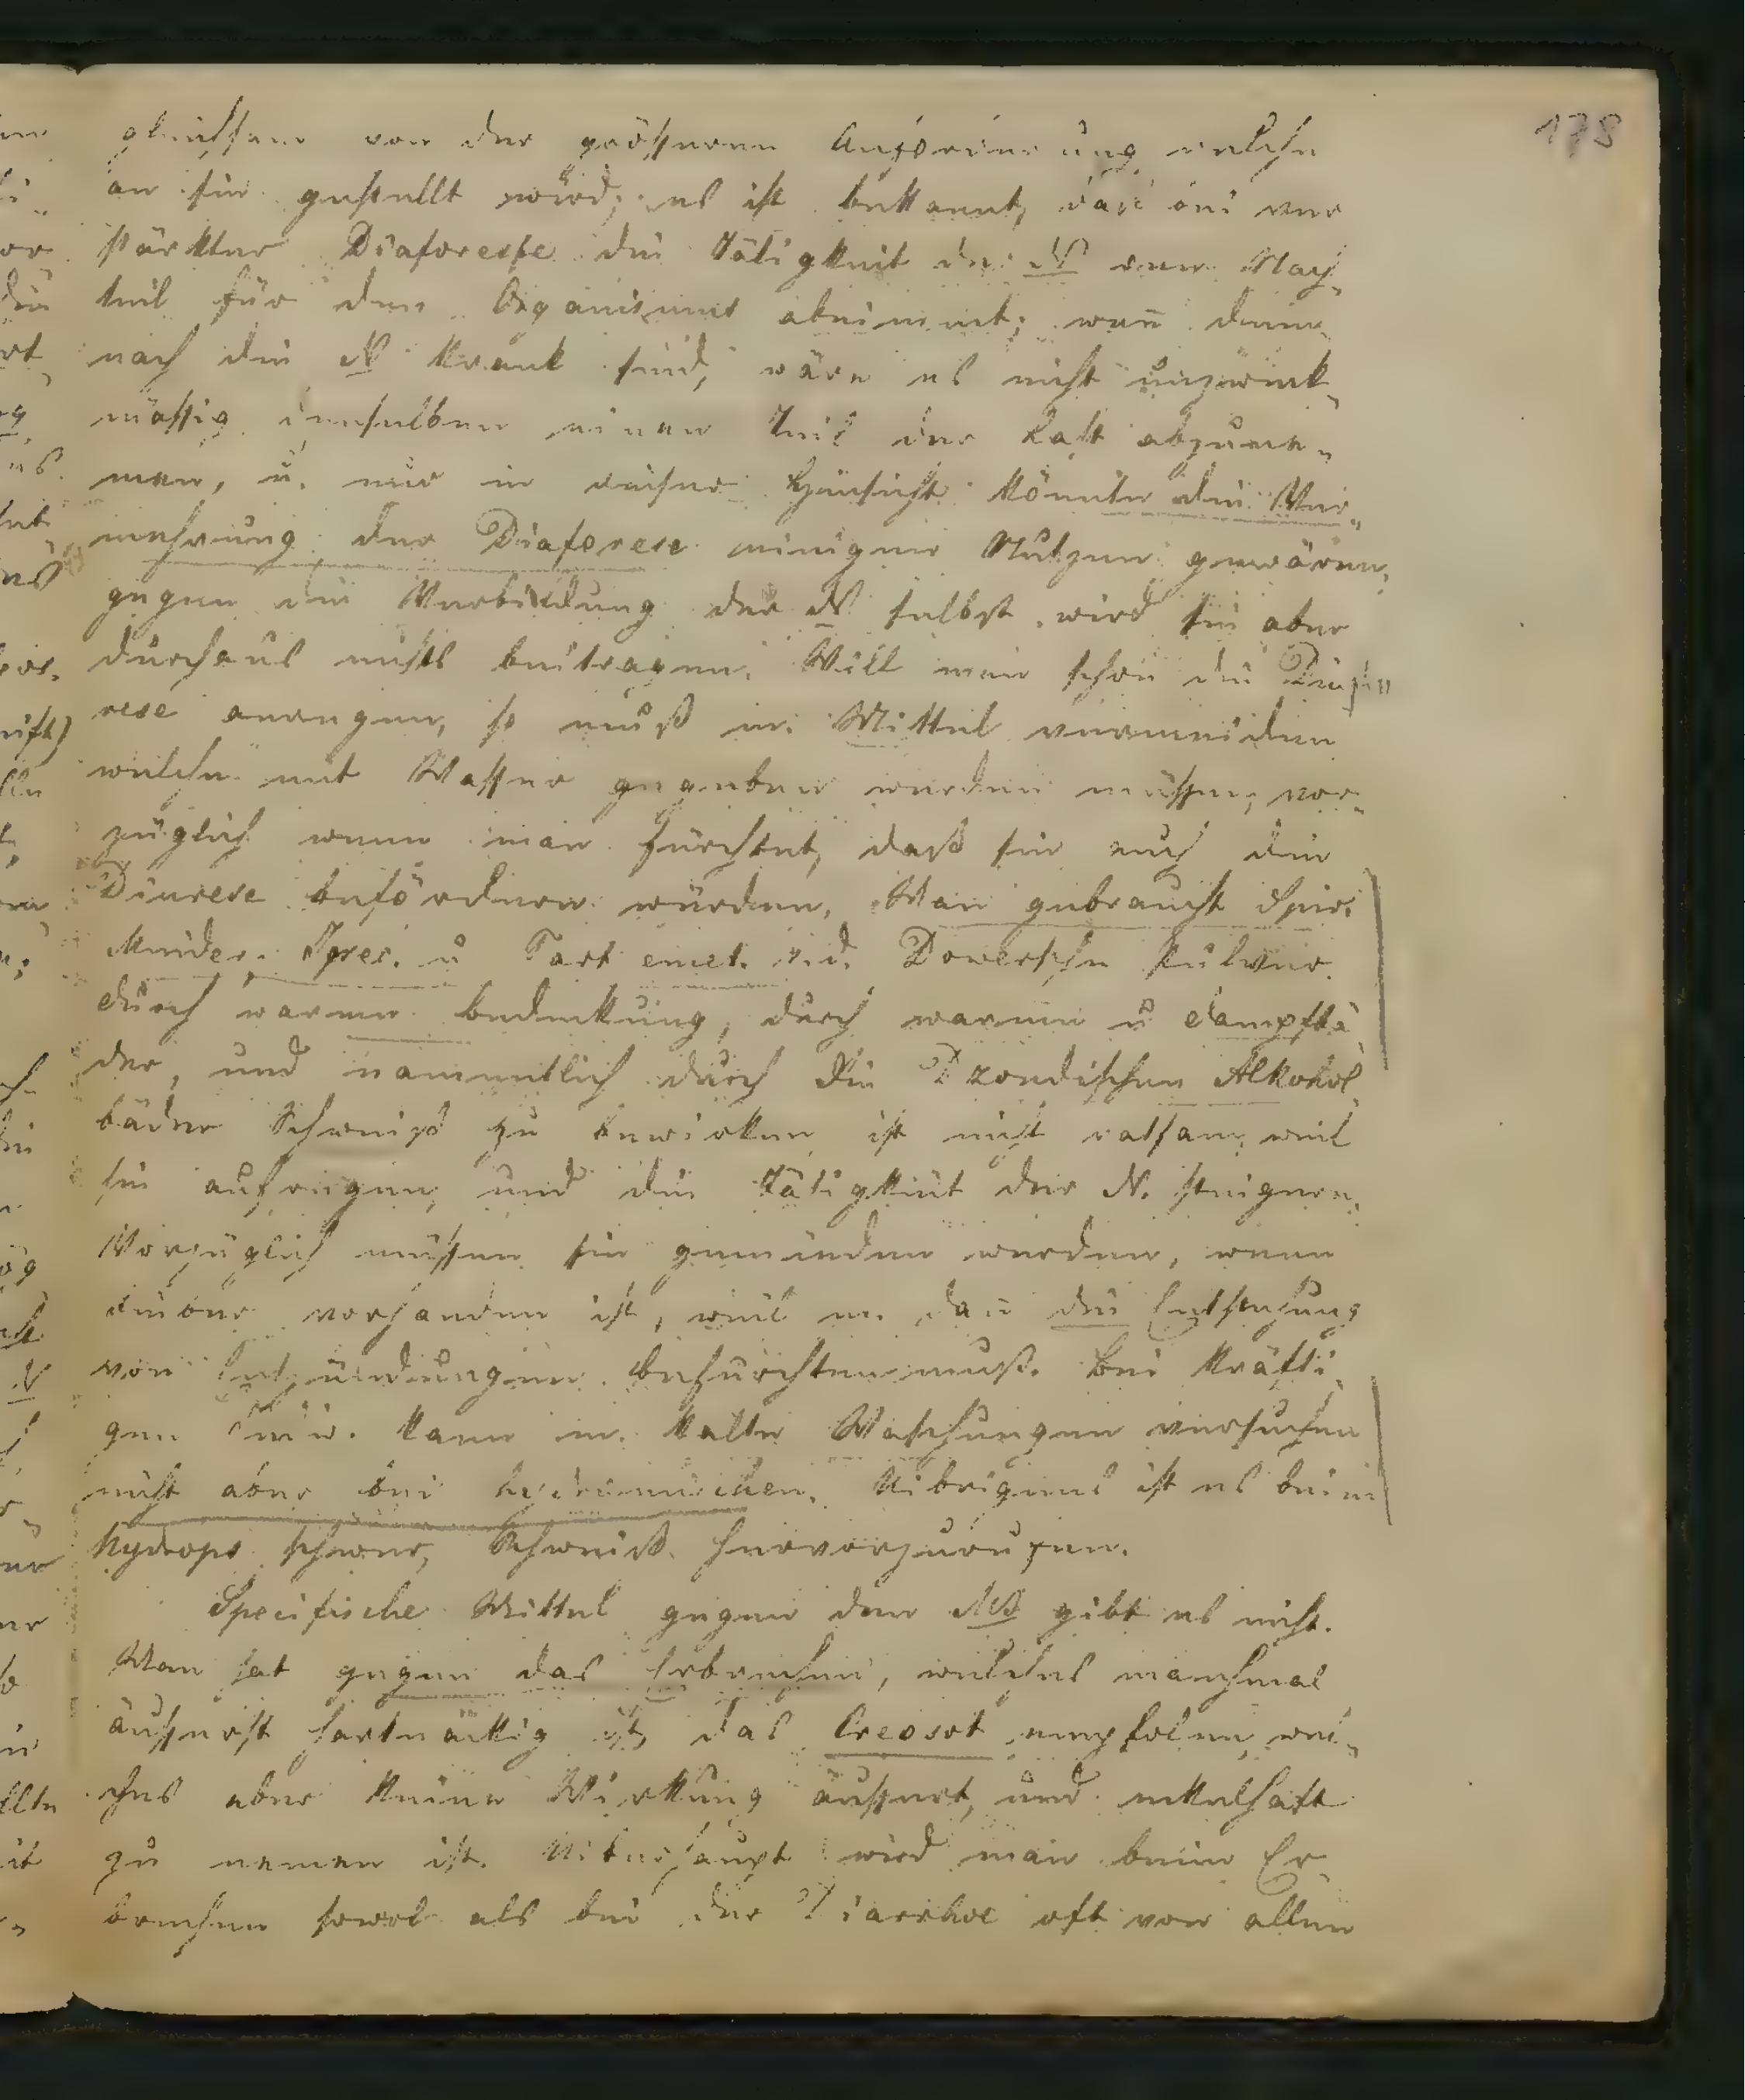 178
gleichsam von der grösseren Anforderung welche
an sie gestellt wird; es ist bekannt, daß bei ver
stärkter Diaforese die Tätigkeit der N zum Nach„
teil für den Organismus abnimmt; wenn dem„
nach die N krank sind, wäre es nicht unzweck„
mässig denselben einen Teil der Last abzuneh„
men, u. nur in dieser Hinsicht könnte die Ver„
mehrung der Diaforese einigen Nutzen gewären,
gegen die Verbildung der N selbst wird sie aber
durchaus nichts beitragen. Will man schon die Diafo„
rese anregen, so muß m. Mittel vermeiden
welche mit Wasser gegeben werden müssen, vor„
züglich wenn man fürchtet, daß sie auch die
Diurese befördern würden. Man gebraucht Spir.
Minder. Ipec. u Tart emet. u.d. Dowersche Pulver.
durch warme Bedeckung, durch warme u dampfbä„
der, und namentlich durch die Dzondischen Alkohol„
bäder Schweiß zu bewirken ist nicht ratsam, weil
sie aufregen, und die Tätigkeit der N. steigern.
Vorzüglich müssen sie gemieden werden, wenn
Fieber vorhanden ist, weil m. dan̄ die Entstehung
von Entzündungen befürchten muß. Bei kräfti„
gen kann m. kalte Waschungen versuchen
nicht aber bei hydrämischen. Uibrigens ist es beim
Hydrops schwer, Schweiß hervorzurufen.
Specifische Mittel gegen den MB gibt es nicht.
Man hat gegen das Erbrechen, welches manchmal
äusserst hartnäckig ist, das Creosot empfolen, wel„
ches aber keine Wirkung äussert, und ekelhaft
zu nemen ist. Uiberhaupt wird man beim Er„
brechen sowol als bei der Diarrhoe oft von allen